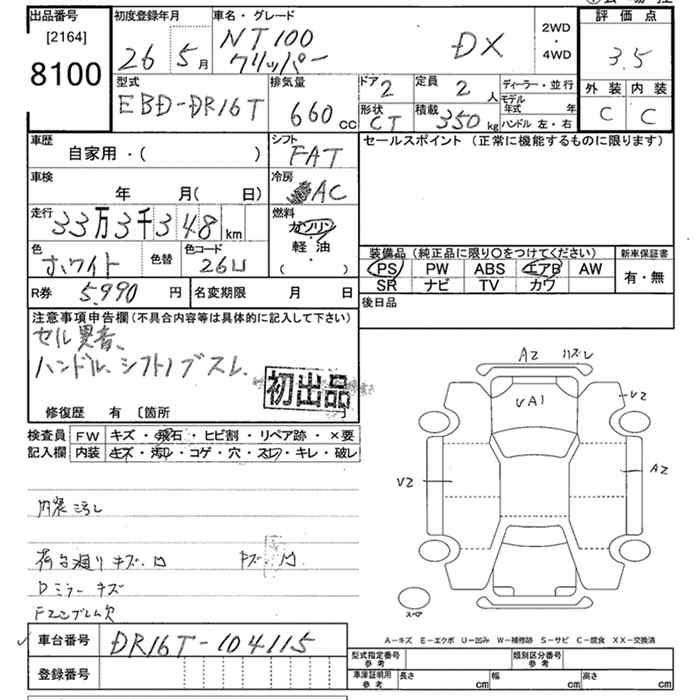 出品番号 初度登録年月 車名・グレード 評価点
[2164]
8100
26 5月
NT100
クリッパー DX
2WD
・
4WD
3.5
型式 排気量 ドア 定員 ディーラー・並行
外装 内装
EBD-DR16T 660cc 2 2人
モデル年式 年
形状 積載 ハンドル 左・右
CT 350kg
C C
車歴 シフト セールスポイント(正常に機能するものに限ります)
自家用・( ) FAT
車検 冷房
年 月( 日) AC
走行 燃料
33万3千348km ガソリン
軽・油
( )
色 色替 色コード
ホワイト 26U
装備品(純正品に限り○をつけてください) 新車保証書
PS PW ABS エアB AW
SR ナビ TV カワ
有・無
R券 5,990円 名変期限 月 日
後日品
注意事項申告欄(不具合内容等は具体的に記入して下さい)
セル異音、
ハンドル、シフトノブスレ、
初出品
修復歴 有 〔箇所
検査員 FW キズ・飛石・ヒビ割・リペア跡・×要
記入欄 内装 キズ・汚レ・コゲ・穴・スレ・キレ・破レ
A2 ハズレ
UA1
U2
U2
A2
内装汚れ
荷台廻りキズ、凹
Dミラーキズ
Fエンブレム欠
スペア
A-キズ E-エクボ U-凹み W-補修跡 S-サビ C-腐食 XX-交換済
車台番号 DR16T-104115
登録番号
型式指定番号 参考 類別区分番号 参考
車庫証明用 参考 長さ cm 幅 cm 高さ cm